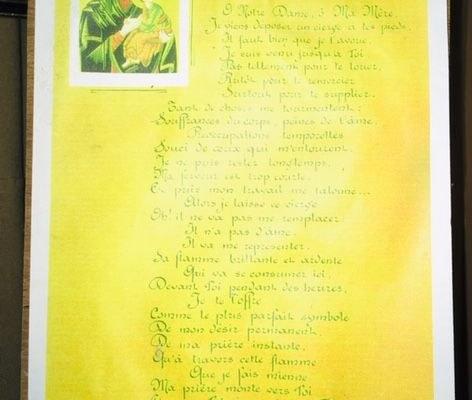 O Notre Dame, ô Ma Mère,
Je viens déposer un cierge à tes pieds.
Il faut bien que je l'avoue,
Je suis venu jusqu'à Toi
Pas tellement pour te louer,
Plutôt pour te remercier
Surtout pour te supplier.
Tant de choses me tourmentent :
Souffrances du corps, peines de l'âme,
Préoccupations temporelles
Souci de ceux qui m'entourent.
Je ne puis rester longtemps.
Ma ferveur est trop courte.
Et puis mon travail me talonne...
Alors je laisse ce cierge
Oh! il ne va pas me remplacer.
Il n'a pas d'âme.
Il va me représenter.
Sa flamme brillante et ardente
Qui va se consumer ici,
Devant Toi pendant des heures,
Je te l'offre
Comme le plus parfait symbole
De mon désir permanent,
De ma prière instante.
Qu'à travers cette flamme
Que je fais mienne
Ma prière monte vers Toi